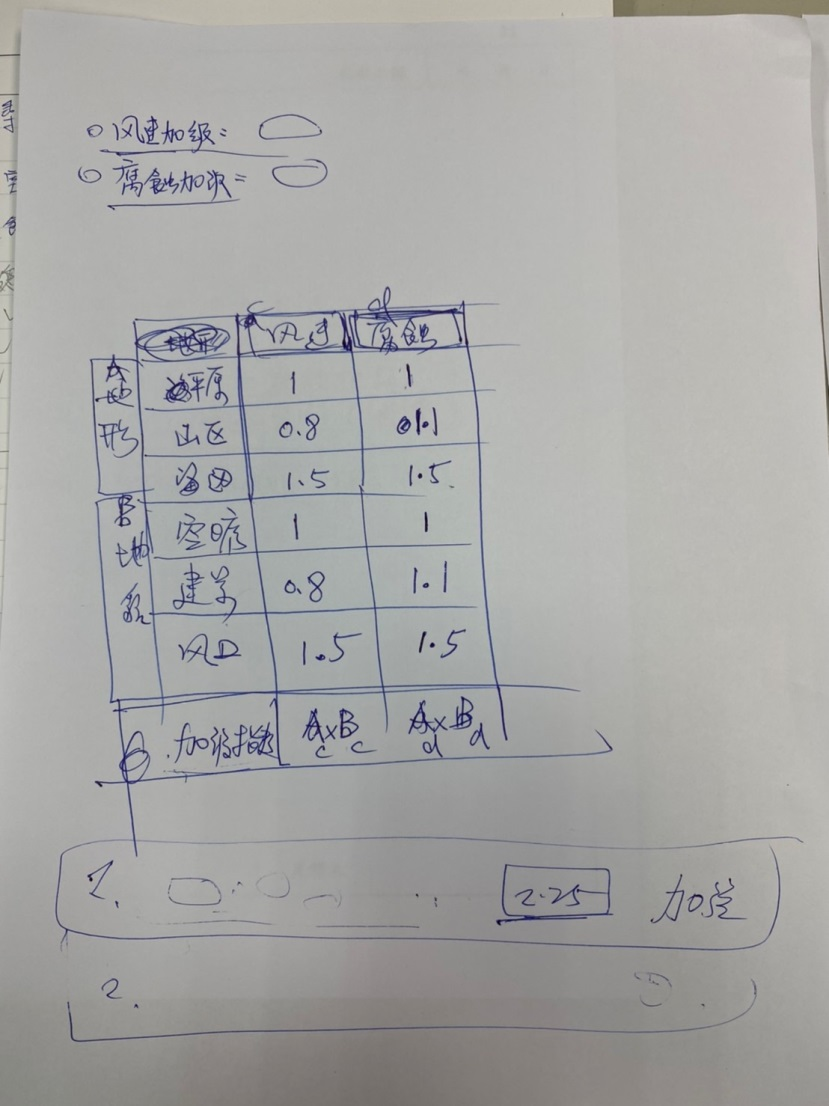 风速加级=
腐蚀加级=
c d
风速 腐蚀
A地形 平原 1 1
山区 0.8 1.1
海田 1.5 1.5
B地貌 空旷 1 1
建筑 0.8 1.1
风口 1.5 1.5
加级指数 A×B A×B
c c d d
1. 2.25 加强
2.